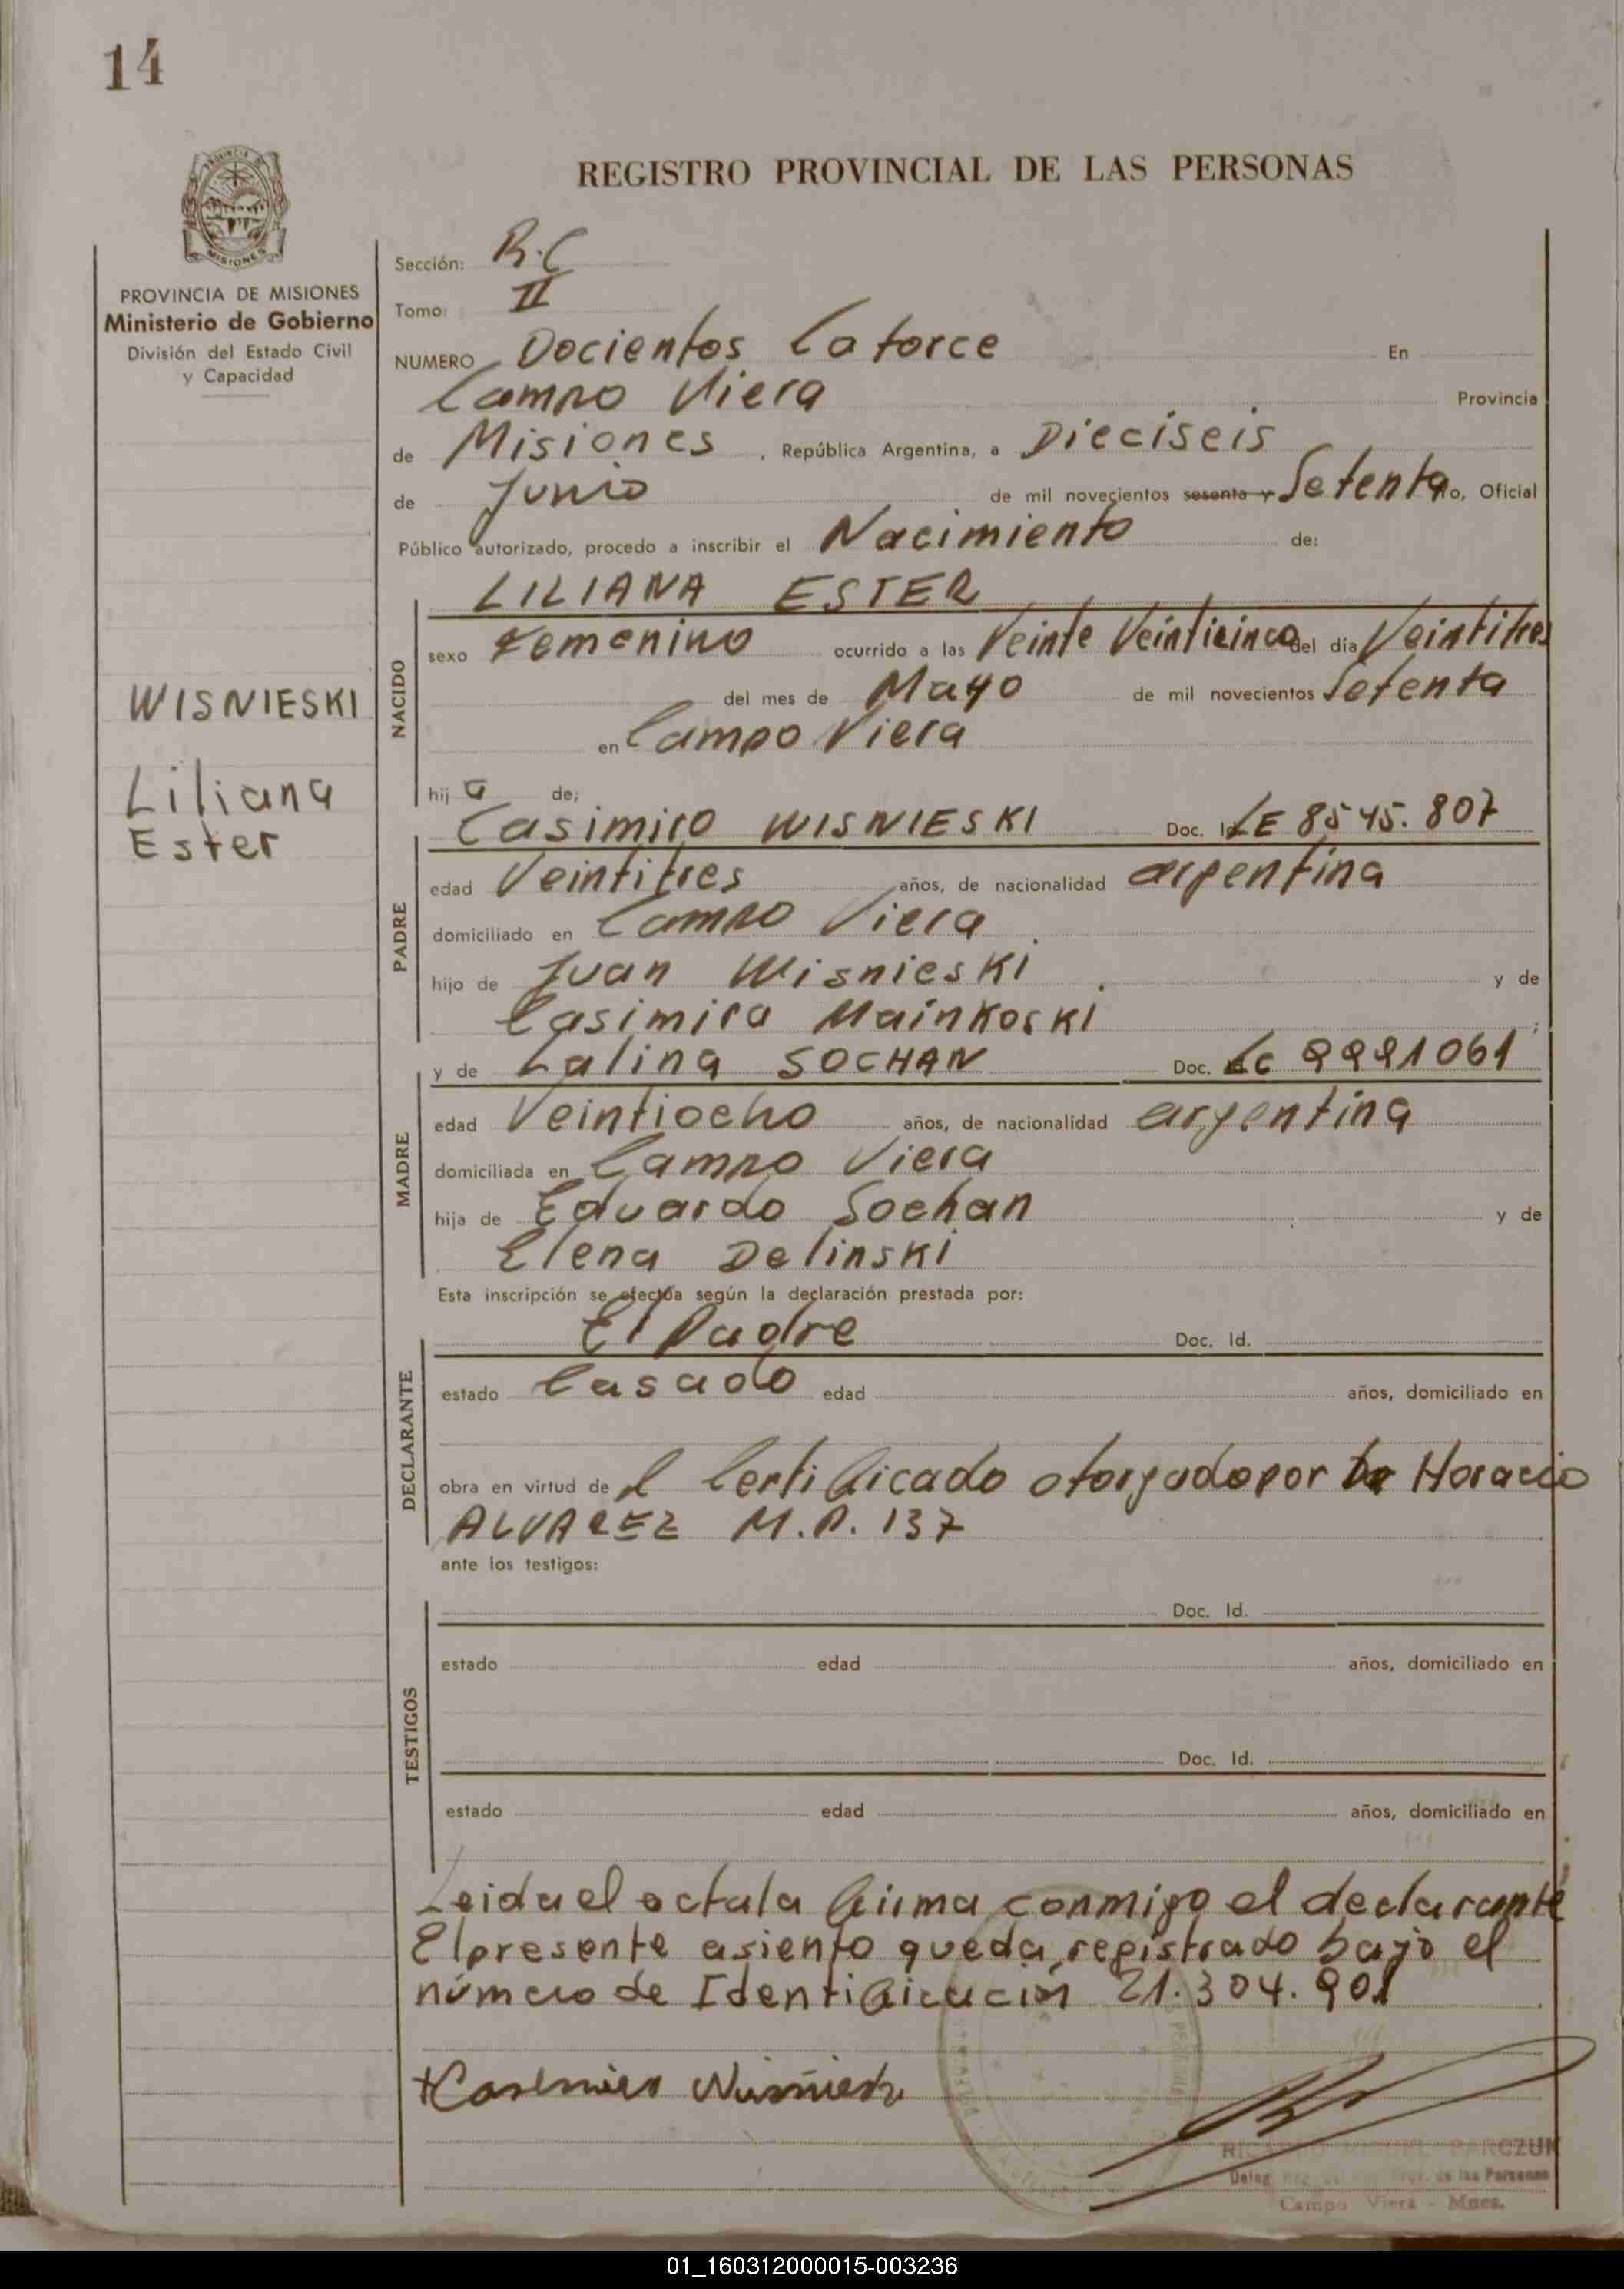 14
PROVINCIA DE MISIONES
Ministerio de Gobierno
División del Estado Civil
y Capacidad
WISNIESKI
Liliana
Ester
REGISTRO PROVINCIAL DE LAS PERSONAS
Sección: R.C
Tomo: II
NUMERO Docientos Catorce En
Campo Viera Provincia
de Misiones, República Argentina, a Dieciseis
de Junio de mil novecientos sesenta y Setenta o, Oficial
Público autorizado, procedo a inscribir el Nacimiento de:
LILIANA ESTER
NACIDO
sexo Femenino ocurrido a las Veinte Veinticinco del día Veintitres
del mes de Mayo de mil novecientos Setenta
en Campo Viera
hij a de;
Casimiro WISNIESKI Doc. LE 8545.807
PADRE
edad Veintitres años, de nacionalidad argentina
domiciliado en Campo Viera
hijo de Juan Wisnieski y de
Casimira Mainkoski;
y de Lalina SOCHAN Doc. LC 9991061
MADRE
edad Veintiocho años, de nacionalidad argentina
domiciliada en Campo Viera
hija de Eduardo Sochan y de
Elena Delinski
Esta inscripción se efectúa según la declaración prestada por:
El Padre Doc. Id.
DECLARANTE
estado Casado edad años, domiciliado en
obra en virtud de l Certificado otorgado por Horacio
ALVAREZ M.P. 137
ante los testigos:
TESTIGOS
Doc. Id.
estado edad años, domiciliado en
Doc. Id.
estado edad años, domiciliado en
Leida el actala firma conmigo el declarante
El presente asiento queda registrado bajo el
número de Identificación 21.304.901
Campo Viera - Mnes.
01_160312000015-003236